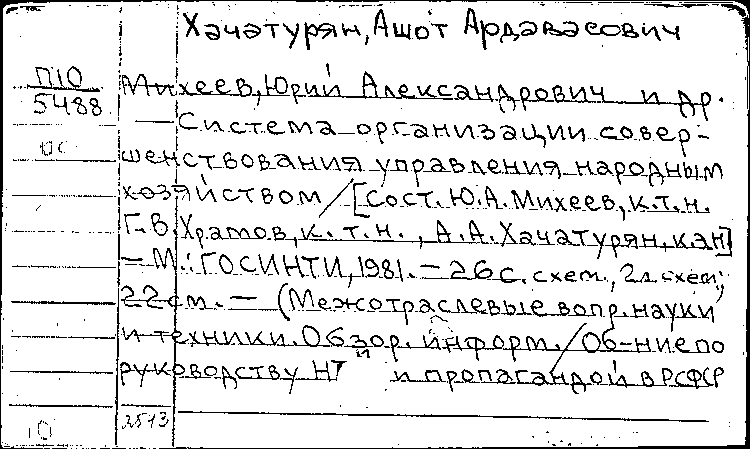 Хачатурян, Ашот Ардавасович
П10
5488
Михеев, Юрий Александрович и др.
— Система организации совер-
шенствования управления народным
хозяйством / [Сост. Ю.А. Михеев, к.т.н.
Г.В. Храмов, к.т.н., А.А. Хачатурян, к.э.н]
— М.: ГОСИНТИ, 1981. — 26 с. схем., 2 л. схем;
22 см. — (Межотраслевые вопр. науки
и техники. Обзор. информ. / Об-ние по
руководству НТИ и пропагандой в РСФСР
2513